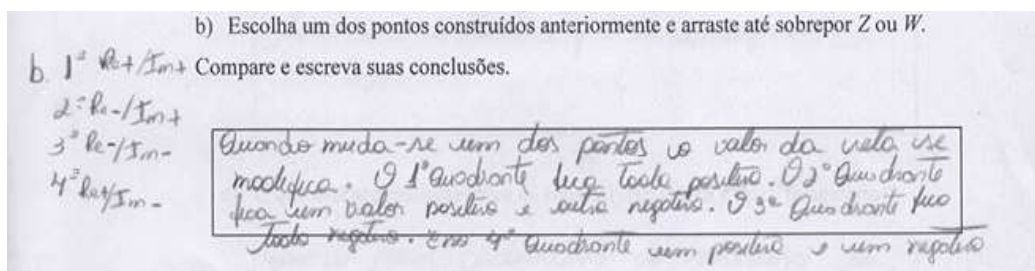 b) Escolha um dos pontos construídos anteriormente e arraste até sobrepor Z ou W.
Compare e escreva suas conclusões.
b. 1º Re+/Im+
2º Re-/Im+
3º Re-/Im-
4º Re+/Im-
Quando muda-se um dos pontos o valor da reta se
modifica. O 1º Quadrante fica todo positivo. O 2º Quadrante
fica um valor positivo e outro negativo. O 3º Quadrante fica
todo negativo. E no 4º Quadrante um positivo e um negativo